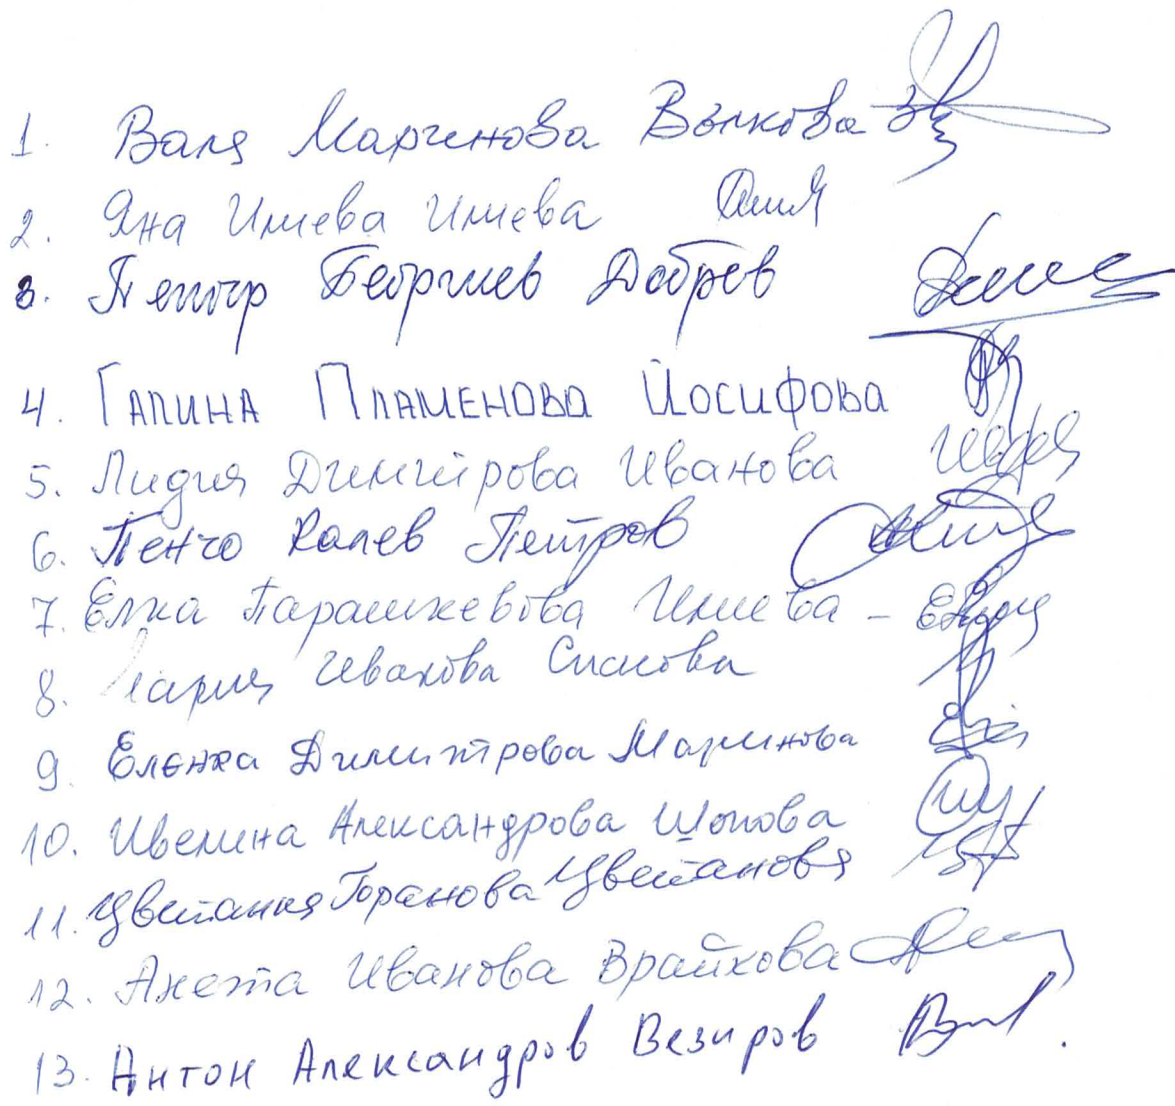 1. Валя Маринова Вълкова
2. Яна Илиева Илиева
3. Петър Георгиев Добрев
4. Галина Пламенова Йосифова
5. Лидия Димитрова Иванова
6. Пенчо Колев Петров
7. Елка Парашкевова Илиева -
8. Мария Иванова Спасова
9. Еленка Димитрова Маринова
10. Ивелина Александрова Шопова
11. Цветанка Горанова Цветанова
12. Анета Иванова Врайкова
13. Антон Александров Везиров